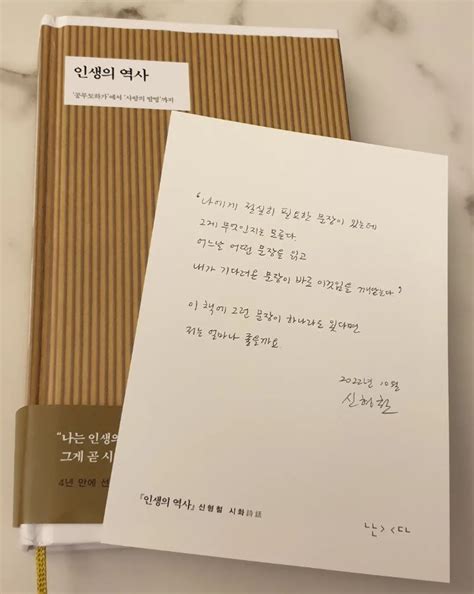 인생의 역사
'공무도하가'에서 '사랑의 발명'까지
'나에게 절실히 필요한 문장이 있는데
그게 무엇인지는 모른다.
어느날 어떤 문장을 읽고
내가 기다려온 문장이 바로 이것임을 깨닫는다'
이 책에 그런 문장이 하나라도 있다면
저는 얼마나 좋을까요.
2022년 10월
신형철
"나는 인생의
그게 곧 시
4년 만에 선
『인생의 역사』 신형철 시화詩話
난><다